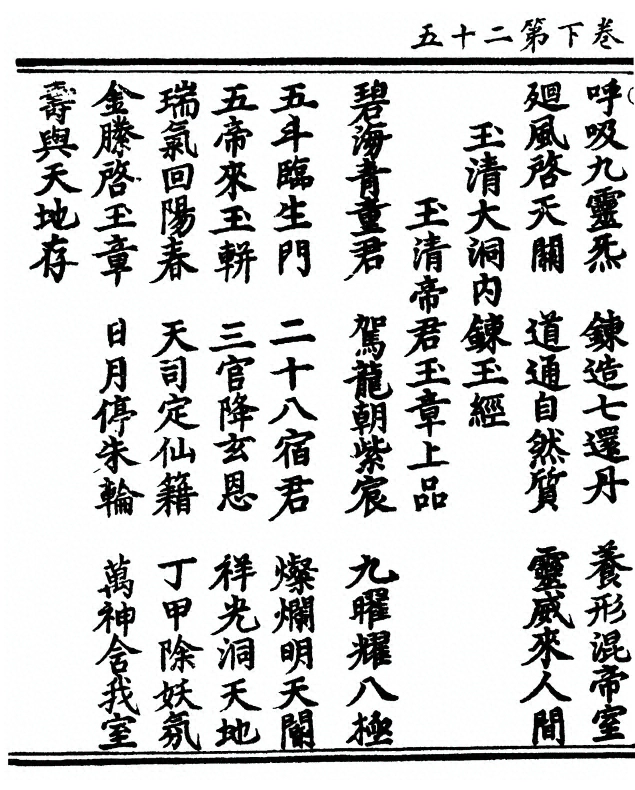 卷下第二十五
呼吸九靈炁　鍊造七還丹　養形混帝室
廻風啓天關　道通自然質　靈威來人間
玉清大洞内鍊玉經
玉清帝君玉章上品
碧海青童君　駕龍朝紫宸　九曜耀八極
五斗臨生門　二十八宿君　燦爛明天閽
五帝來玉軿　三官降玄恩　祥光洞天地
瑞氣回陽春　天司定仙籍　丁甲除妖氛
金縢啓玉章　日月停朱輪　萬神舍我室
壽與天地存